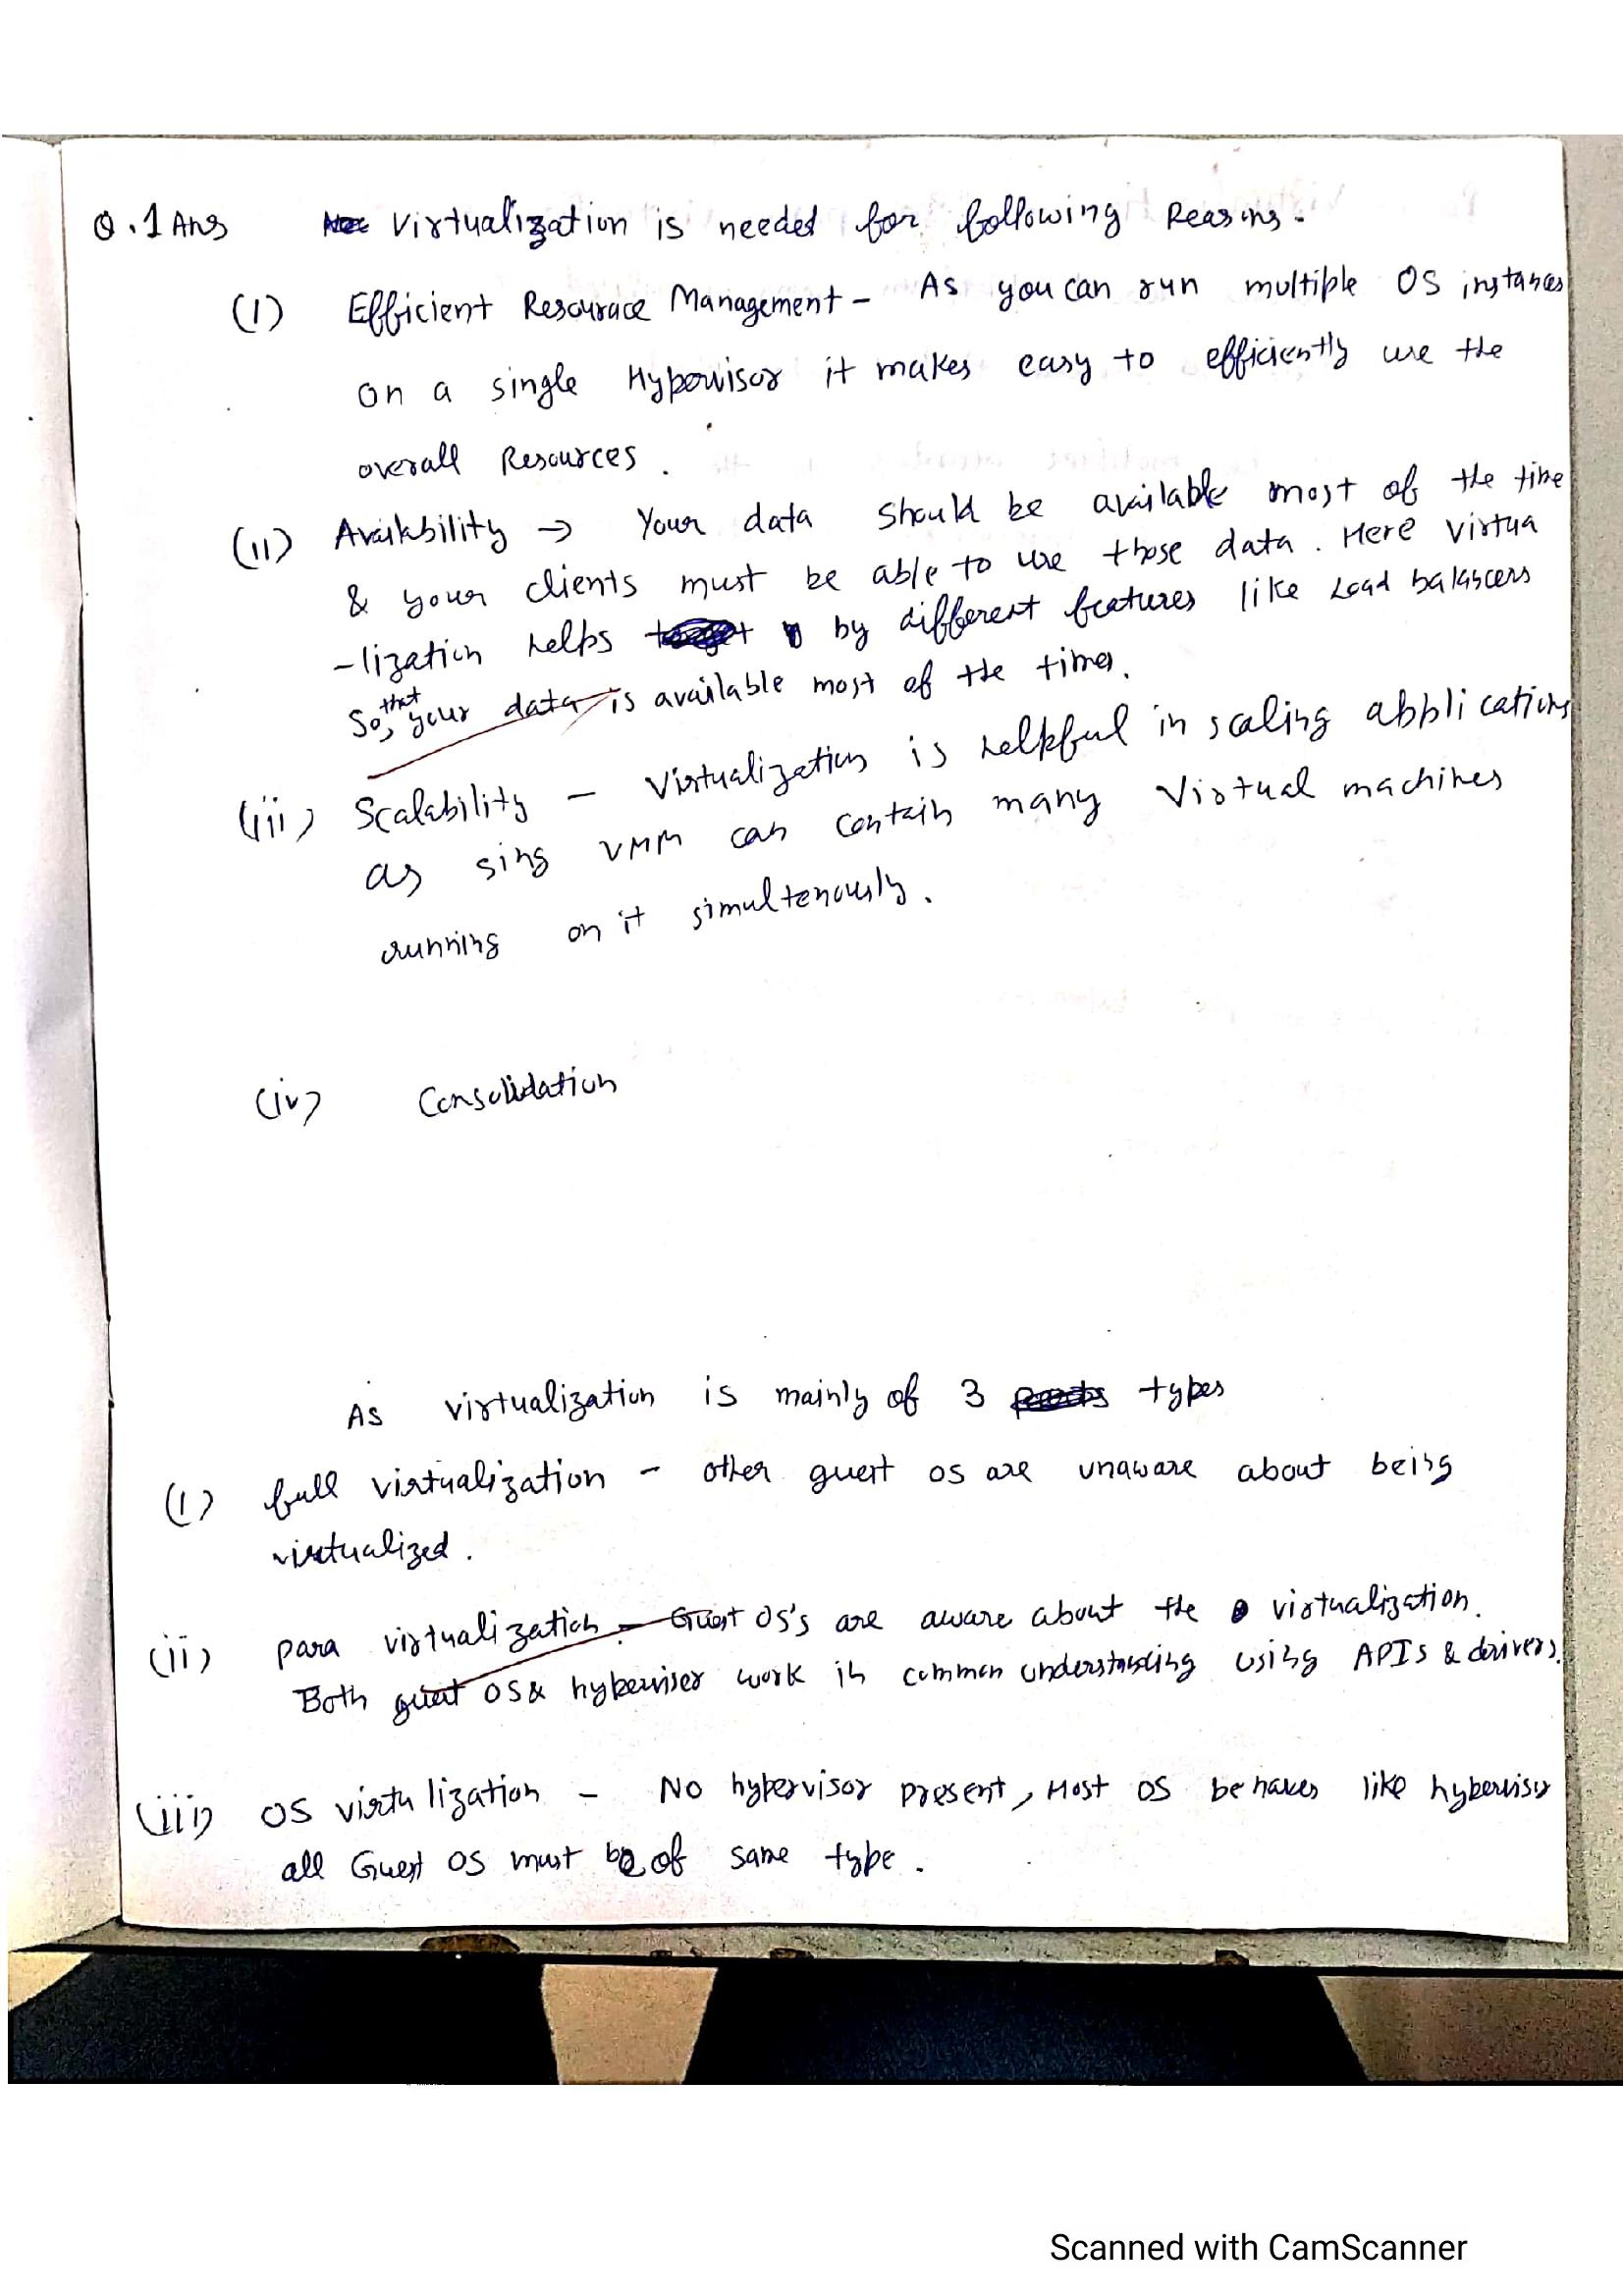 Q.1 Ans Virtualization is needed for following Reasons.
(I) Efficient Resourace Management - As you can run multiple OS instances
on a single Hypervisor it makes easy to efficiently use the
overall Resources.
(II) Availability → Your data should be available most of the time
& your clients must be able to use those data. Here virtua
-lization helps by different features like Load balancers
So, that your data is available most of the times.
(iii) Scalability - Virtualization is helpful in scaling applications
as sing VMM can contain many Virtual machines
running on it simultenously.
(iv) Consolidation
As virtualization is mainly of 3 types
(I) full virtualization - other guest os are unaware about being
virtualized.
(ii) para virtualization - Guest OS's are aware about the virtualization.
Both guest OS & hyperviser work in common understanding using APIs & drivers.
(iii) OS virtulization - No hypervisor present, Host OS behaves like hypervisor
all Guest OS must be of same type.
Scanned with CamScanner